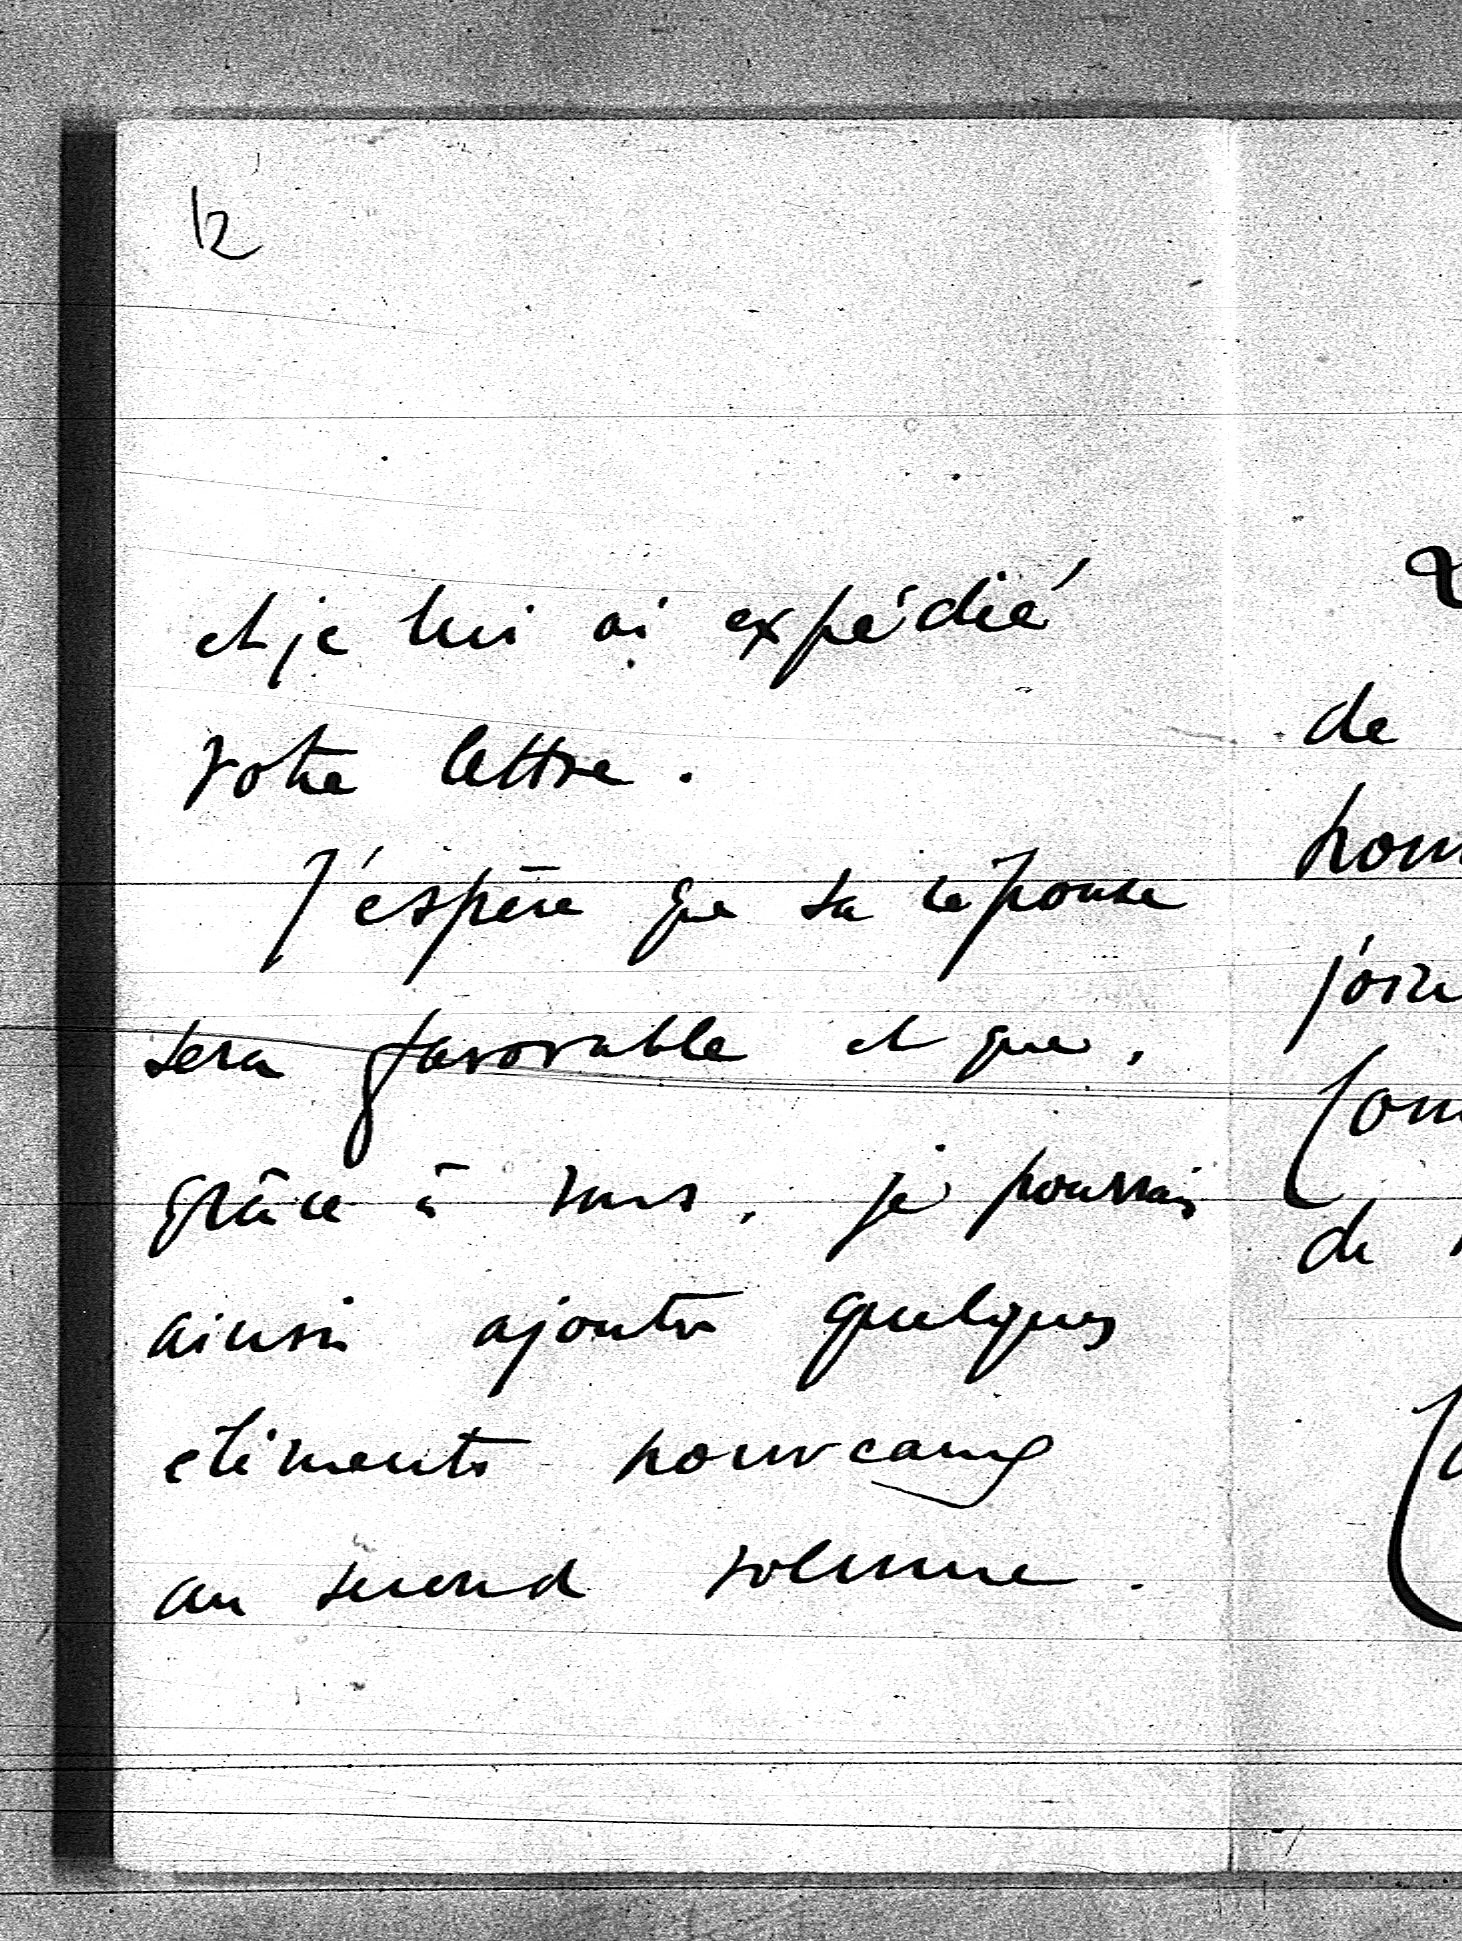 12
et je lui ai expédié
votre lettre.
J'espère que sa réponse
sera favorable et que,
grâce à vous, je pourrais
ainsi ajouter quelques
éléments nouveaux
au second volume.
de
pour
de